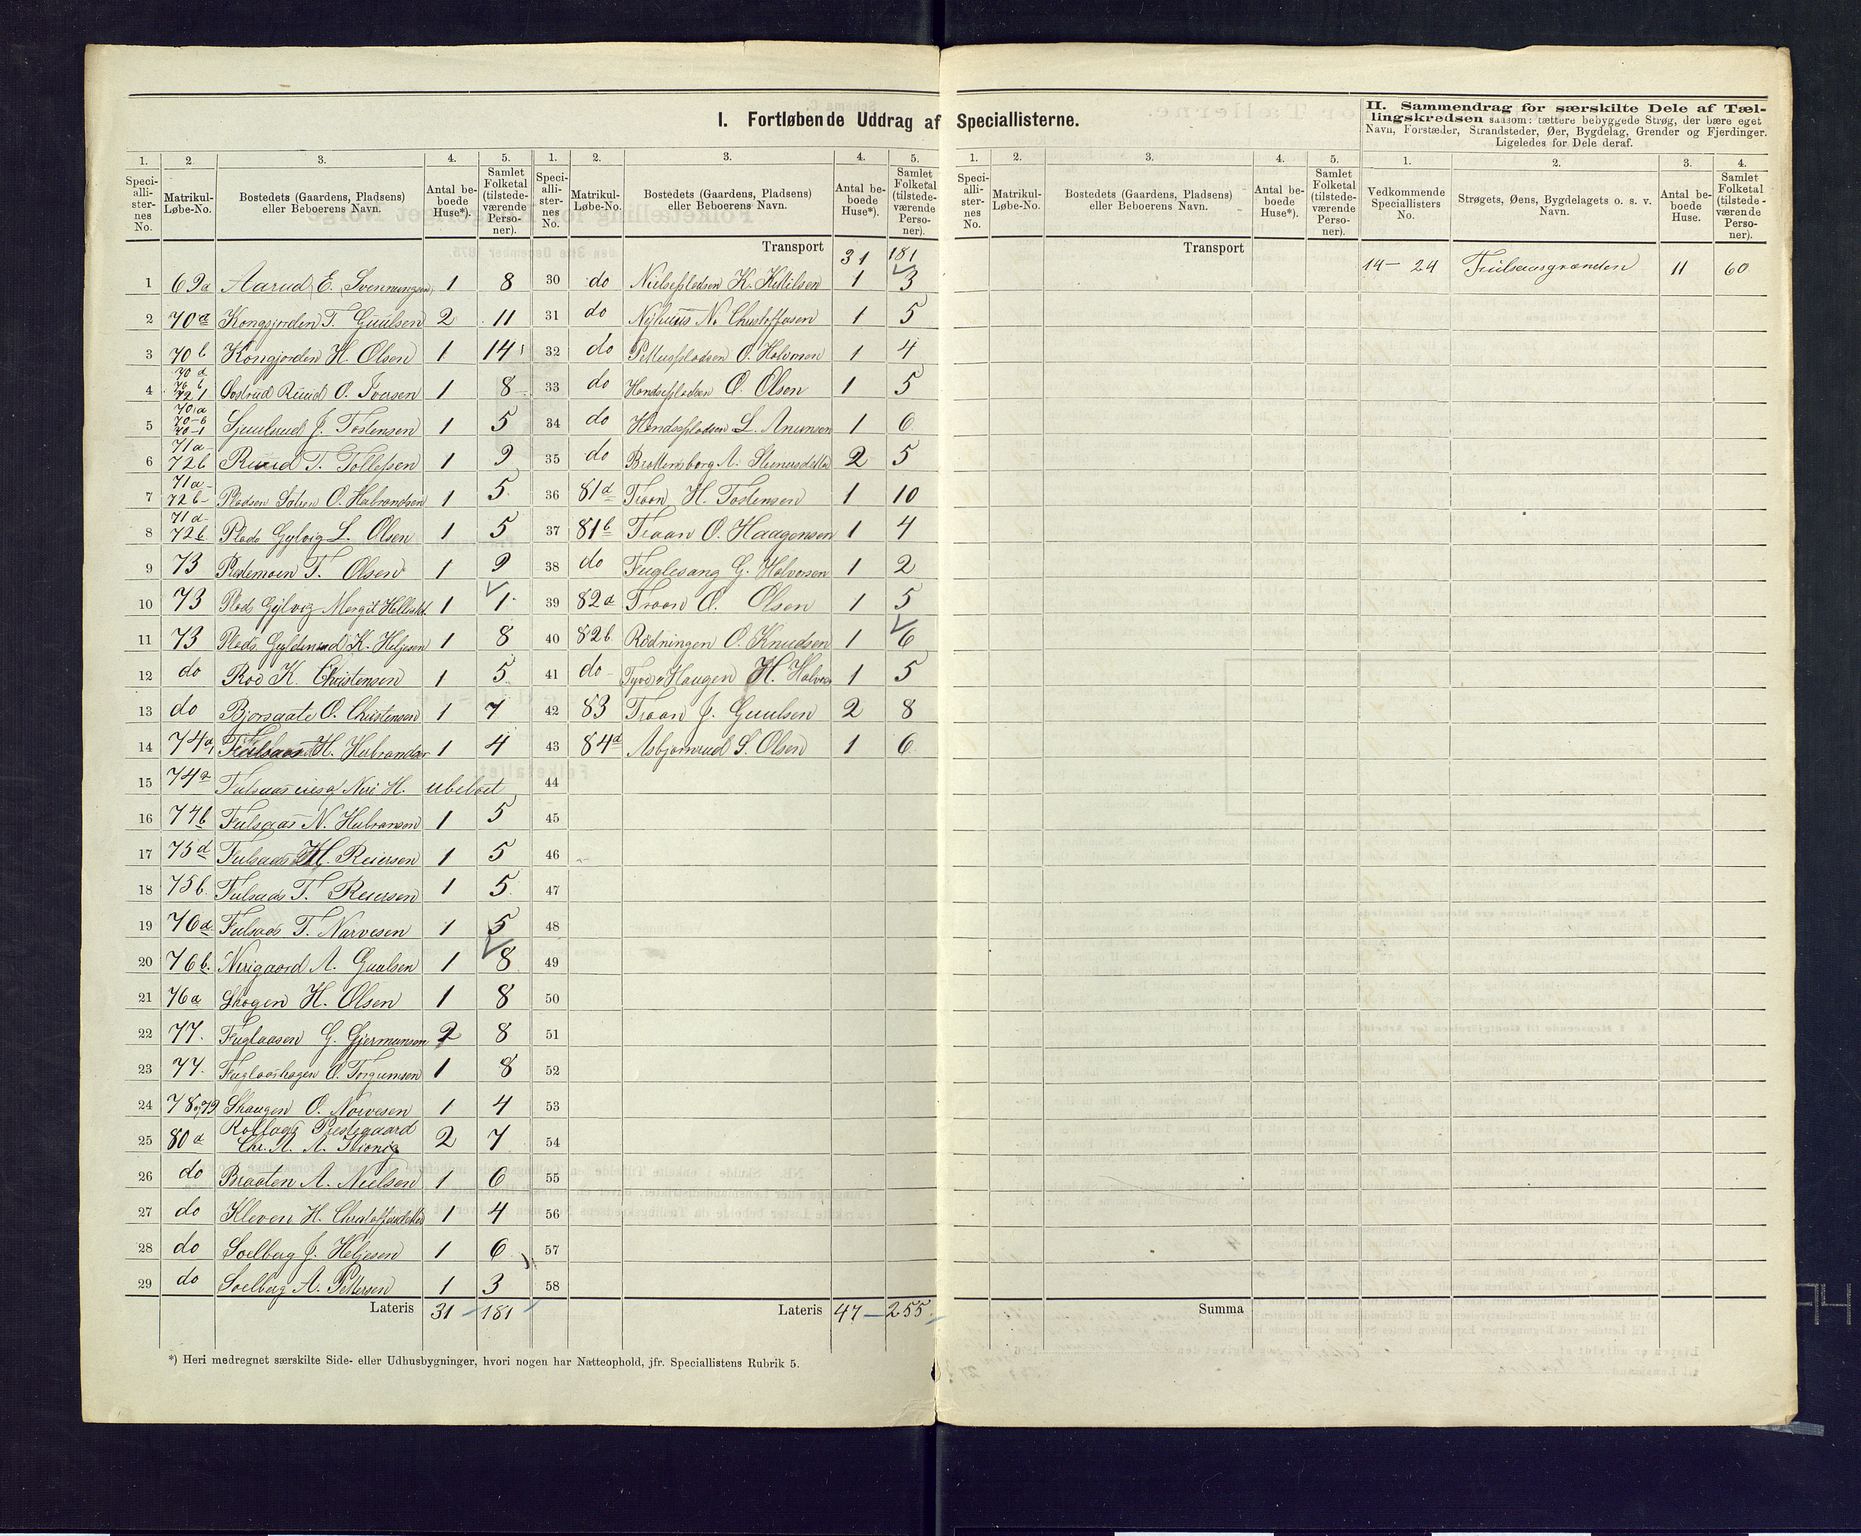 I. Fortløbende Uddrag af Speciallisterne.
II. Sammendrag for særskilte Dele af Tæl-
lingskredsen saasom: tættere bebyggede Strøg, der bære eget
Navn, Forstæder, Strandsteder, Øer, Bygdelag, Grender og Fjerdinger.
Ligeledes for Dele deraf.
1. 2. 3. 4. 5. 1. 2. 3. 4. 5. 1. 2. 3. 4. 5. 1. 2. 3. 4.
Speciallisternes No. Matrikul-Løbe-No. Bostedets (Gaardens, Pladsens) eller Beboerens Navn. Antal beboede Huse*). Samlet Folketal (tilstedeværende Personer).
Speciallisternes No. Matrikul-Løbe-No. Bostedets (Gaardens, Pladsens) eller Beboerens Navn. Antal beboede Huse*). Samlet Folketal (tilstedeværende Personer).
Speciallisternes No. Matrikul-Løbe-No. Bostedets (Gaardens, Pladsens) eller Beboerens Navn. Antal beboede Huse*). Samlet Folketal (tilstedeværende Personer).
Vedkommende Speciallisters No. Strøgets, Øens, Bygdelagets o. s. v. Navn. Antal beboede Huse. Samlet Folketal (tilstedeværende Personer).
1 69a Aarud E. Svenningsen 1 8
2 70a Kongsjorden T. Guulsen 2 11
3 70b Kongjorden H. Olsen 1 14
4 Ruud O. Iversen 1 8
5 J. Tostensen 1 5
6 71a 72b Ruud T. Tollefsen 1 9
7 71a 72b Pladsen O. Halvrandsen 1 5
8 71a 72b Plads Gylvig L. Olsen 1 5
9 73 Prestemoen T. Olsen 1 9
10 73 Plads Gylvig Mergit 1 1
11 73 Plads K. Heljesen 1 8
12 do Roe K. Christensen 1 5
13 do Bjorsaate O. Christensen 1 7
14 74a Fulsaas H. 1 4
15 74a Fulsaas ubeboet
16 74b Fulsaas N. Halvransen 1 5
17 75a Fulsaas H. Reiersen 1 5
18 75b Fulsaas T. Reiersen 1 5
19 76a Fulsaas T. Narvesen 1 5
20 76b Nerigaard A. Guulsen 1 8
21 76a Skogen H. Olsen 1 8
22 77. Fuglaasen G. Gjermunsen 2 8
23 77. Fuglaashagen O. Torgumsen 1 8
24 78 79 Skaugen O. Norvesen 1 4
25 80a Rollags Prestegaard
Chr. A. A. 2 7
26 do Braaten A. Nielsen 1 6
27 do Kleven H. 1 4
28 do Soelberg J. Heljesen 1 6
29 do Soelberg A. Pettersen 1 3
Lateris 31 181
Transport 31 181
30 do Nielsepladsen K. Kittilsen 1 3
31 do Nyhuus N. Christoffersen 1 5
32 do Petterspladsen O. Halvorsen 1 4
33 do O. Olsen 1 5
34 do L. Anunsen 1 6
35 do A. 2 5
36 81a Traan H. Tostensen 1 10
37 81b Traan O. Haagensen 1 4
38 do Fuglesang G. Halvorsen 1 2
39 82a Traan O. Olsen 1 5
40 82b Rødningen O. Knudsen 1 6
41 do Haugen H. 1 5
42 83 Traan J. Guulsen 2 8
43 84a Asbjørnrud S. Olsen 1 6
44
45
46
47
48
49
50
51
52
53
54
55
56
57
58
Lateris 47 255
Transport
Summa
14 - 24 Fulsaasgrænden 11 60
*) Heri medregnet særskilte Side- eller Udhusbygninger, hvori nogen har Natteophold, jfr. Speciallistens Rubrik 5.